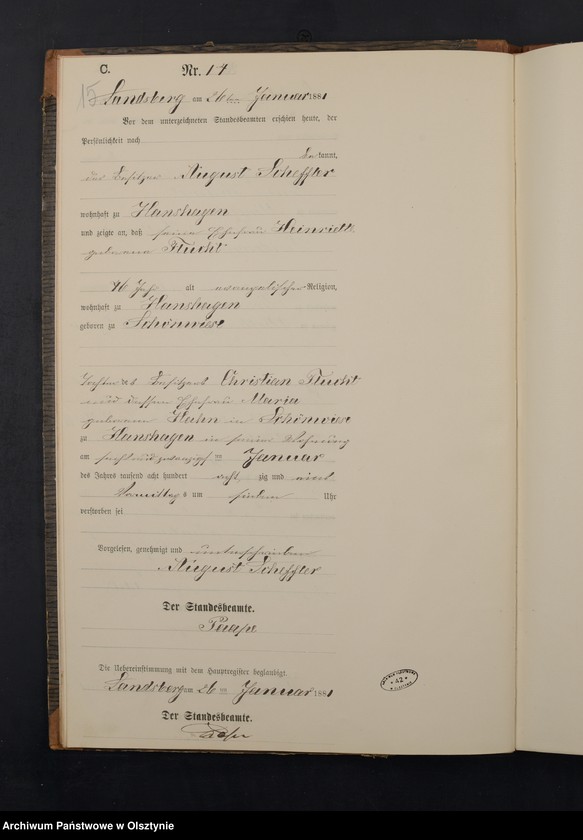 C. Nr. 14
15
Landsberg am 26ten Januar 1881
Vor dem unterzeichneten Standesbeamten erschien heute, der
Persönlichkeit nach
be kannt,
der Besitzer August Scheffler
wohnhaft zu Hanshagen
und zeigte an, daß seine Ehefrau Henriette
geborene Flucht
46 Jahr alt evangelischer Religion,
wohnhaft zu Hanshagen
geboren zu Schönwiese
Tochter des Besitzers Christian Flucht
und dessen Ehefrau Maria
geborene Hahn in Schönwiese
zu Hanshagen in seiner Wohnung
am sechsundzwanzigsten Januar
des Jahres tausend acht hundert acht zig und eins
Vormittags um sieben Uhr
verstorben sei
Vorgelesen, genehmigt und unterschrieben
August Scheffler
Der Standesbeamte.
Die Uebereinstimmung mit dem Hauptregister beglaubigt.
Landsberg am 26ten Januar 1881
Der Standesbeamte.
42
Archiwum Państwowe w Olsztynie